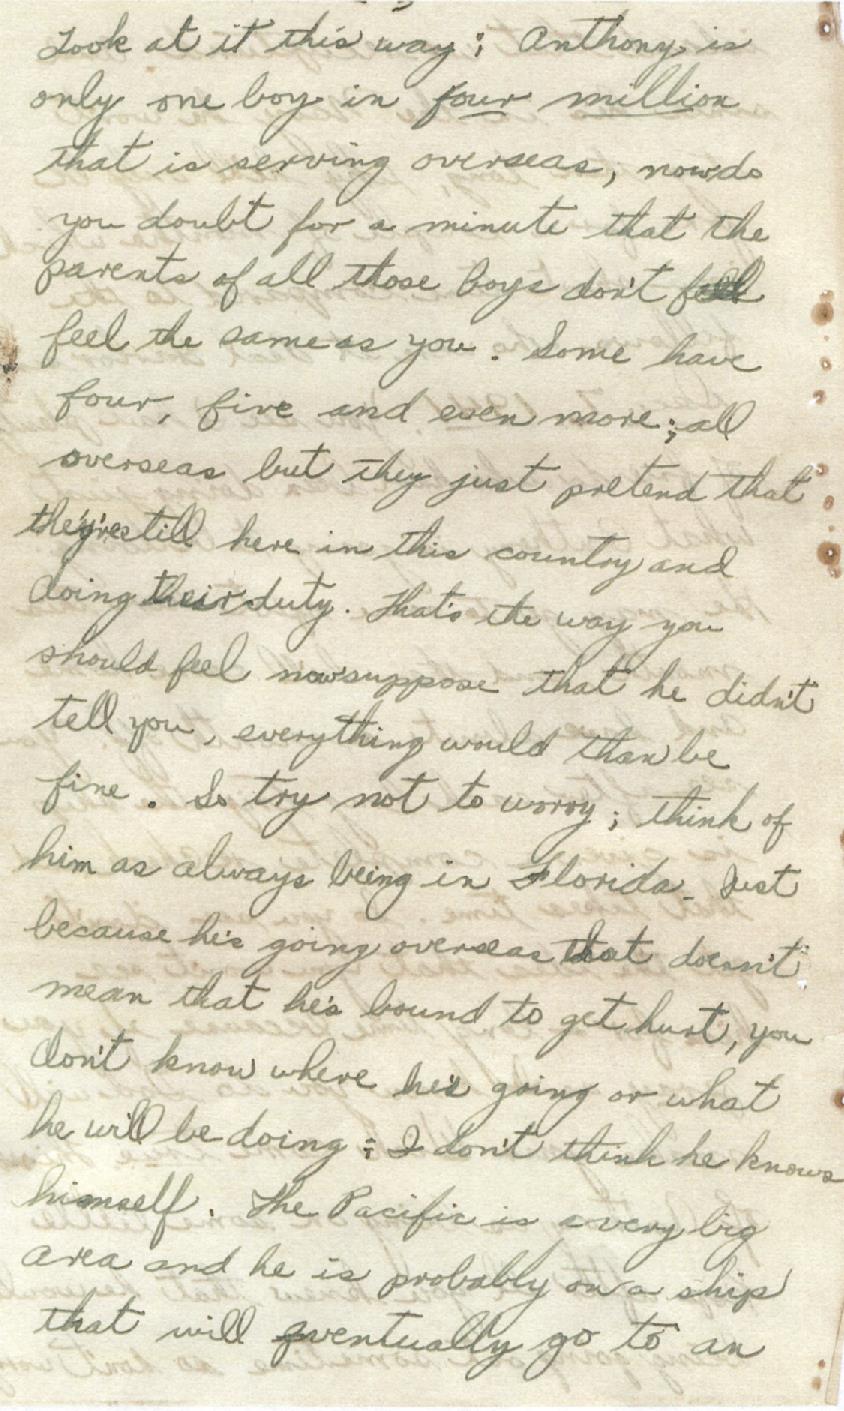 Look at it this way; Anthony is
only one boy in four million
that is serving overseas, now do
you doubt for a minute that the
parents of all those boys don't
feel the same as you. Some have
four, five and even more; all
overseas but they just pretend that
they're still here in this country and
doing their duty. That's the way you
should feel now suppose that he didn't
tell you, everything would than be
fine. So try not to worry; think of
him as always being in Florida. Just
because he's going overseas that doesn't
mean that he's bound to get hurt, you
don't know where he's going or what
he will be doing; I don't think he knows
himself. The Pacific is a very big
area and he is probably on a ship
that will eventually go to an